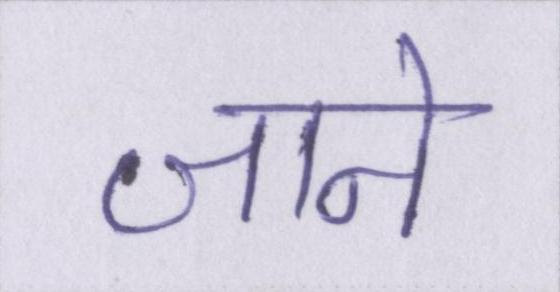 जाने